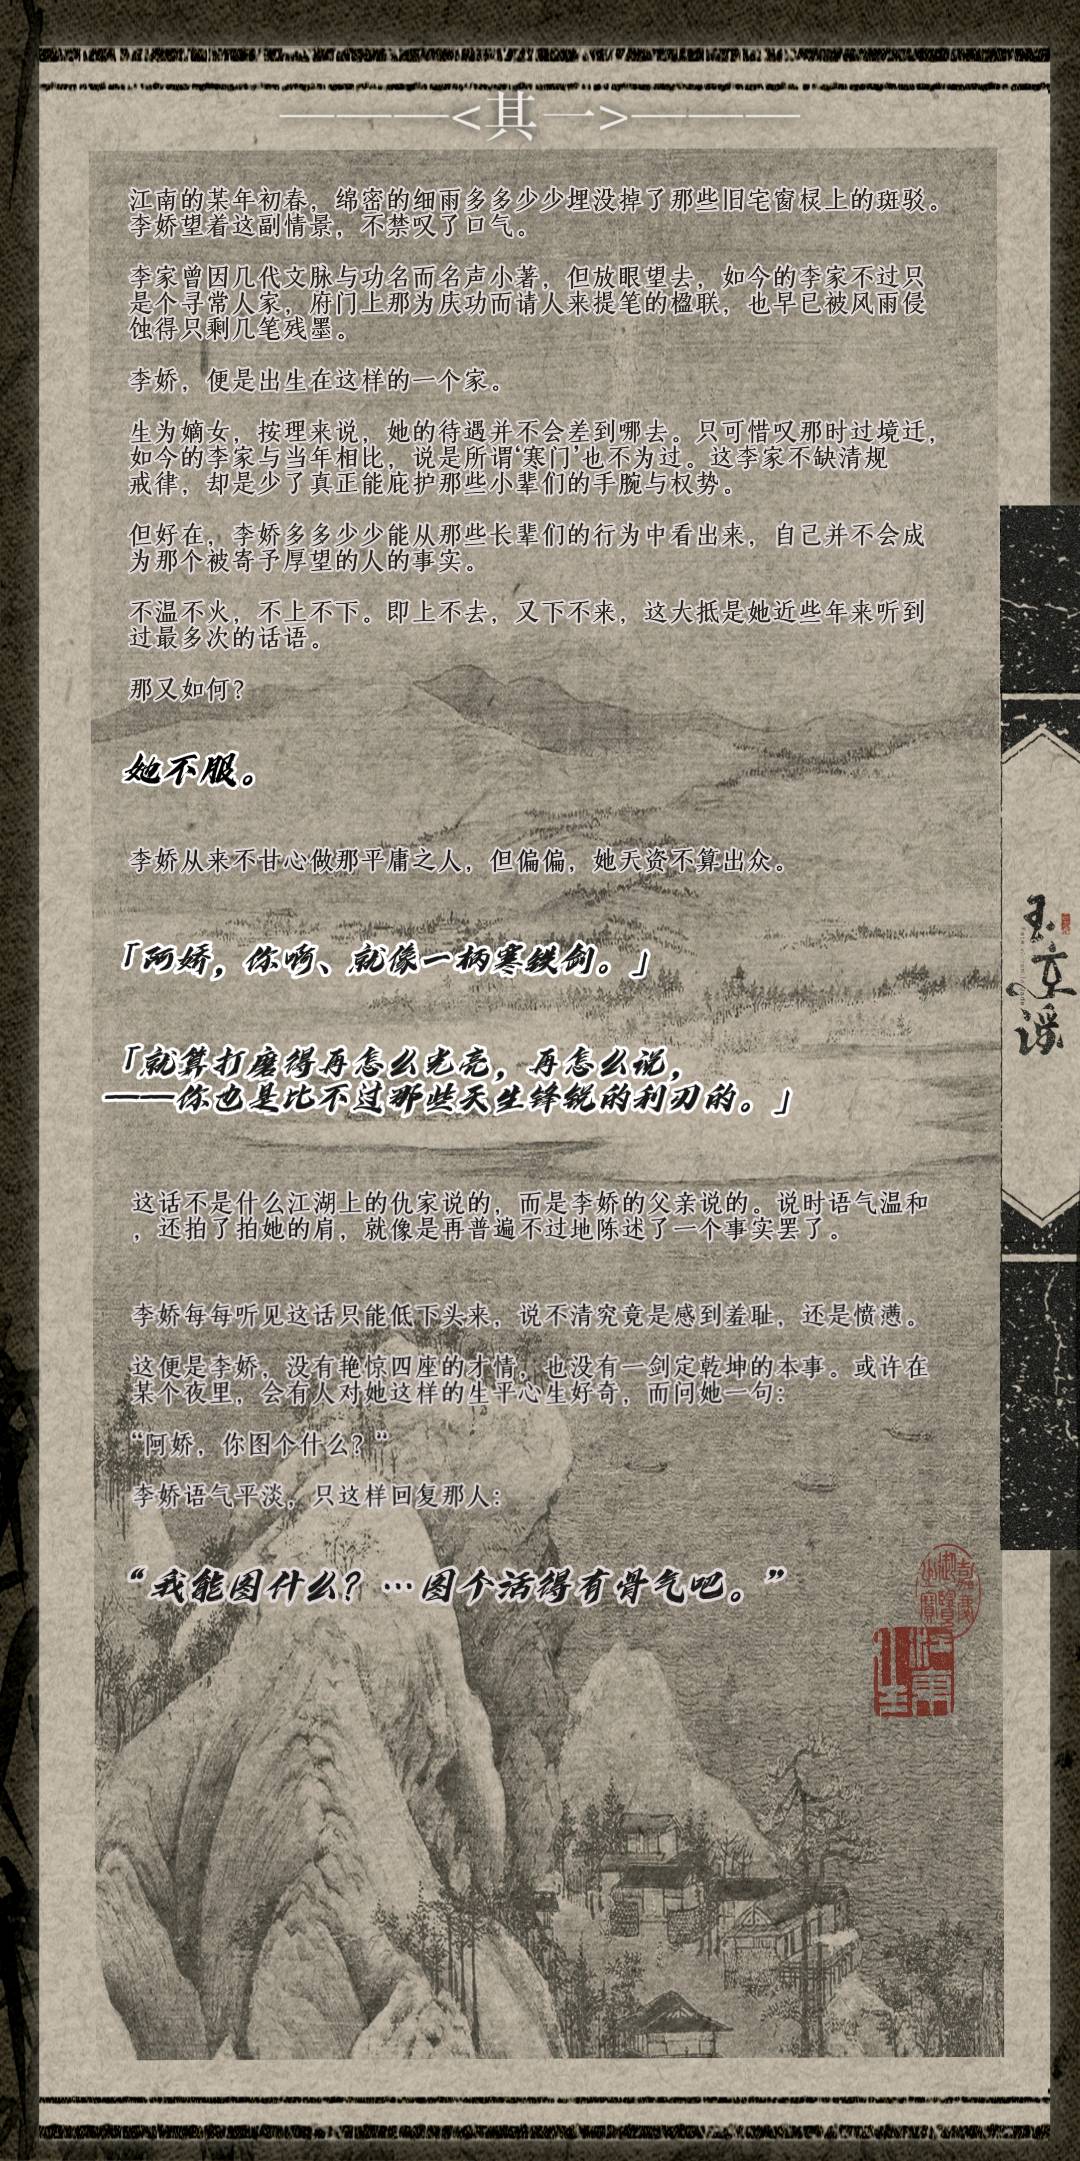 <其一>
江南的某年初春，绵密的细雨多多少少埋没掉了那些旧宅窗棂上的斑驳。
李娇望着这副情景，不禁叹了口气。
李家曾因几代文脉与功名而名声小著，但放眼望去，如今的李家不过只
是个寻常人家，府门上那为庆功而请人来提笔的楹联，也早已被风雨侵
蚀得只剩几笔残墨。
李娇，便是出生在这样的一个家。
生为嫡女，按理来说，她的待遇并不会差到哪去。只可惜叹那时过境迁，
如今的李家与当年相比，说是所谓‘寒门’也不为过。这李家不缺清规
戒律，却是少了真正能庇护那些小辈们的手腕与权势。
但好在，李娇多多少少能从那些长辈们的行为中看出来，自己并不会成
为那个被寄予厚望的人的事实。
不温不火，不上不下。即上不去，又下不来，这大抵是她近些年来听到
过最多次的话语。
那又如何？
她不服。
李娇从来不甘心做那平庸之人，但偏偏，她天资不算出众。
「阿娇，你啊、就像一柄寒铁剑。」
「就算打磨得再怎么光亮，再怎么说，
——你也是比不过那些天生锋锐的利刃的。」
这话不是什么江湖上的仇家说的，而是李娇的父亲说的。说时语气温和
，还拍了拍她的肩，就像是再普遍不过地陈述了一个事实罢了。
李娇每每听见这话只能低下头来，说不清究竟是感到羞耻，还是愤懑。
这便是李娇，没有艳惊四座的才情，也没有一剑定乾坤的本事。或许在
某个夜里，会有人对她这样的生平心生好奇，而问她一句：
“阿娇，你图个什么？“
李娇语气平淡，只这样回复那人：
“我能图什么？…图个活得有骨气吧。”
玉京谣